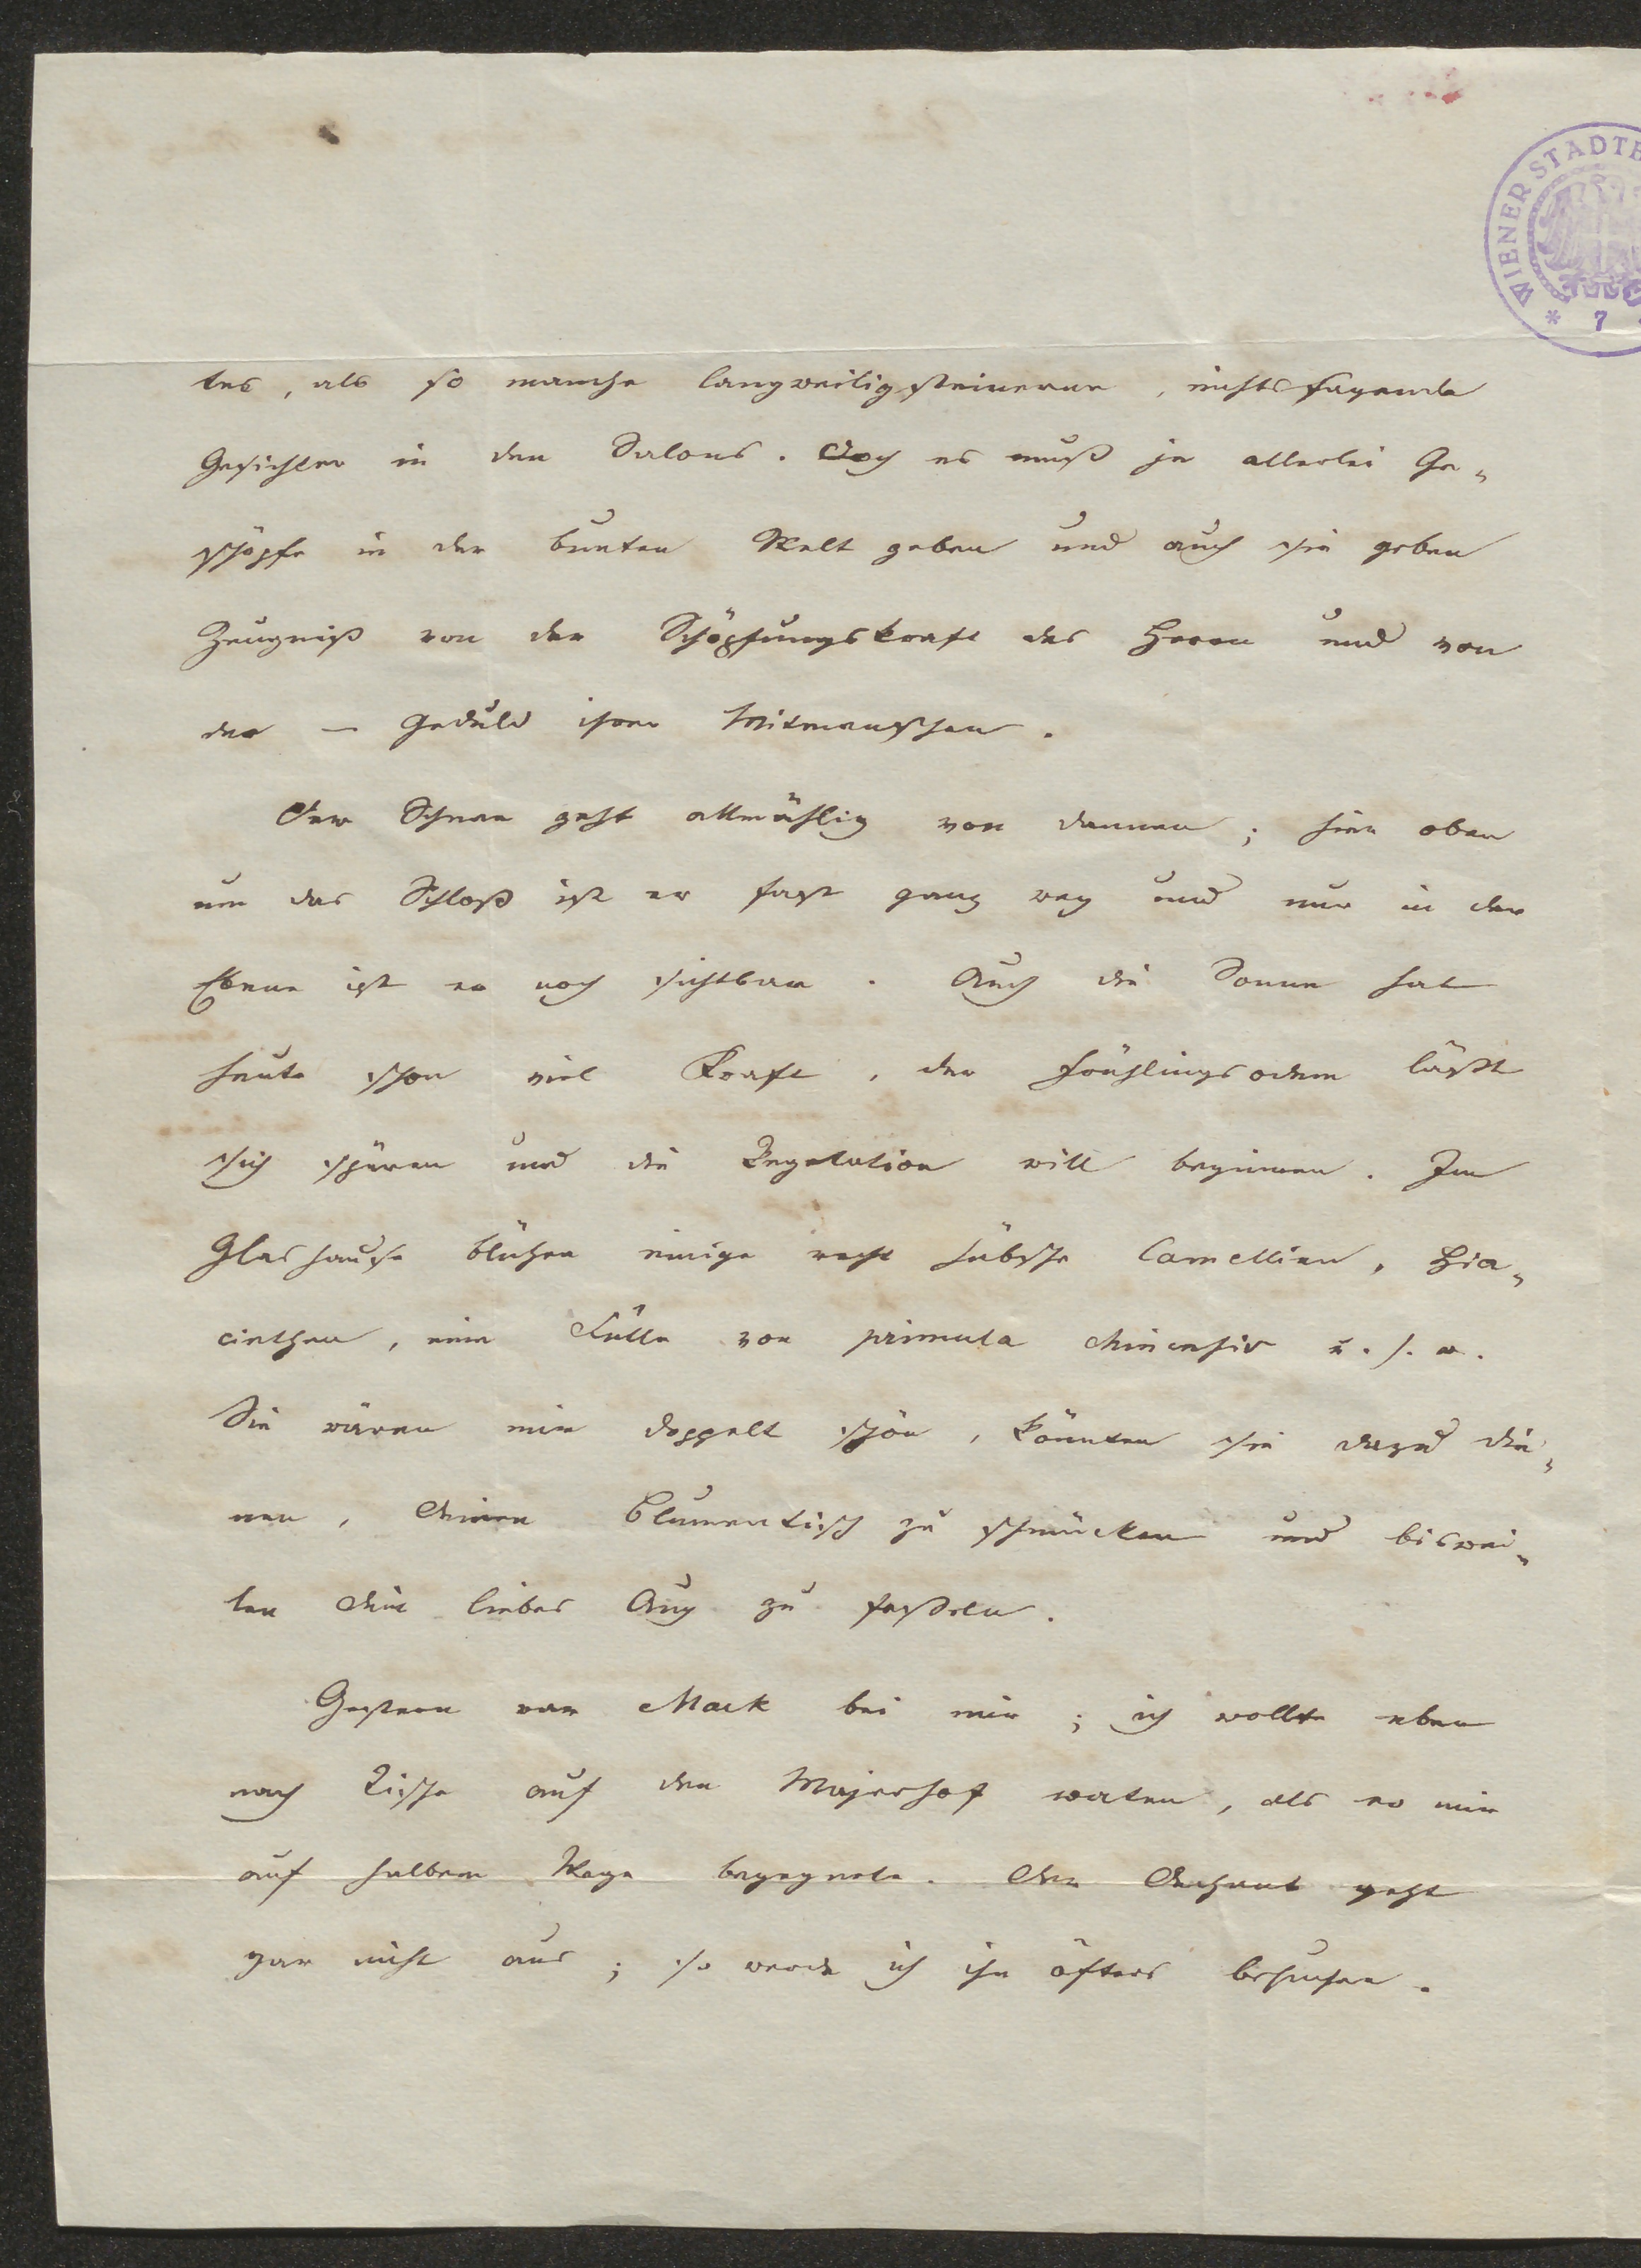 WIENER STADTB
* 7
tes, als so manche langweilig steinerne, nichtssagende
Gesichter in den Salons. Doch es muß ja allerlei Ge-
schöpfe in der bunten Welt geben und auch sie geben
Zeugniß von der Schöpfungskraft des Herrn und von
der – Geduld ihrer Mitmenschen.
Der Schnee geht allmählig von dannen; hier oben
um das Schloß ist er fast ganz weg und nur in der
Ebene ist er noch sichtbar. Auch die Sonne hat
heute schon viel Kraft, der Frühlingsodem läßt
sich spüren und die Vegetation will beginnen. Im
Glashause blühen einige recht hübsche Camellien, Hia-
cinthen, eine Fülle von primula chinensis u. s. w.
Sie wären mir doppelt schön, könnten sie dazu die-
nen, Deinen Blumentisch zu schmücken und biswei-
len Dein liebes Aug zu fesseln.
Gestern war Mack bei mir; ich wollte eben
nach Tische auf den Majerhof waten, als er mir
auf halbem Wege begegnete. Der Dechant geht
gar nicht aus; so werde ich ihn öfters besuchen.